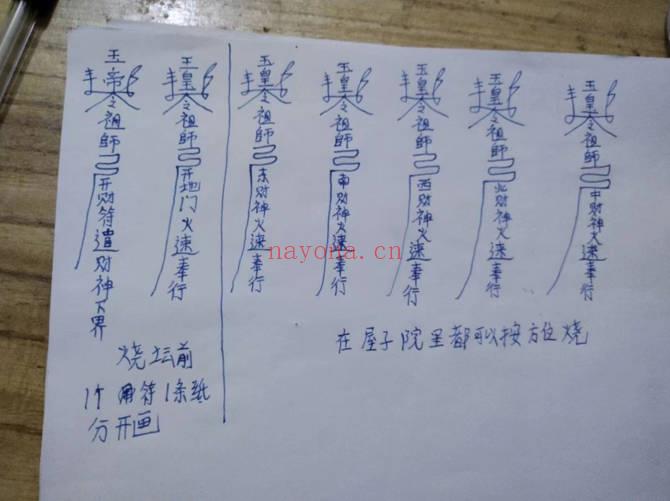 玉帝令祖師開财符遣财神下界
玉皇令祖師開地门火速奉行
玉皇令祖師東财神火速奉行
玉皇令祖師南财神火速奉行
玉皇令祖師西财神火速奉行
玉皇令祖師北财神火速奉行
玉皇令祖師中财神火速奉行
烧坛前
1个符1条纸
分开画
在屋子院里都可以按方位烧
nayona.cn